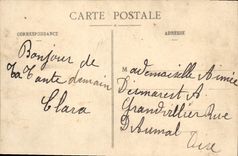 CARTE POSTALE
CORRESPONDANCE
ADRESSE
Bonjour de
ta Tante demain
Clara
Mademoiselle Aimée
Desmarest A
Grandvillier Rue
D'Aumal
Oise